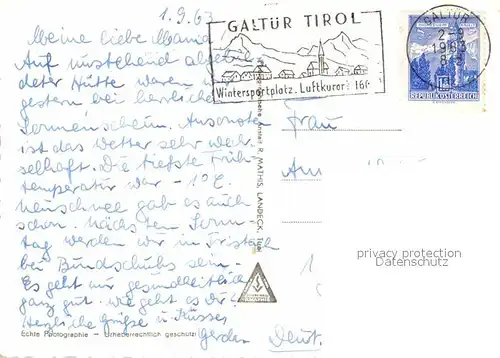 1.9.63
Meine liebe Mama
Auf umstehend abgebil
deter Hütte waren wir
gestern bei herrlichem
Sonnenschein. Ansonsten
ist das Wetter sehr wech
selhaft. Die tiefste Früh
temperatur war -1°C.
Neuschnee gab es auch
schon. Nächsten Sonn
tag werden wir in
bei Bundschuhs sein.
Es geht mir gesundheitlich
ganz gut. Wie geht es Dir?
Herzliche Grüße u. Küsse
Gerda
Echte Photographie — Urheberrechtlich geschützt
GALTÜR TIROL
Wintersportplatz. Luftkurort 16
GALTÜR
2-9
1963
8
REPUBLIK ÖSTERREICH
Anstalt R. MATHIS, LANDECK, Tirol
Frau
privacy protection
Datenschutz